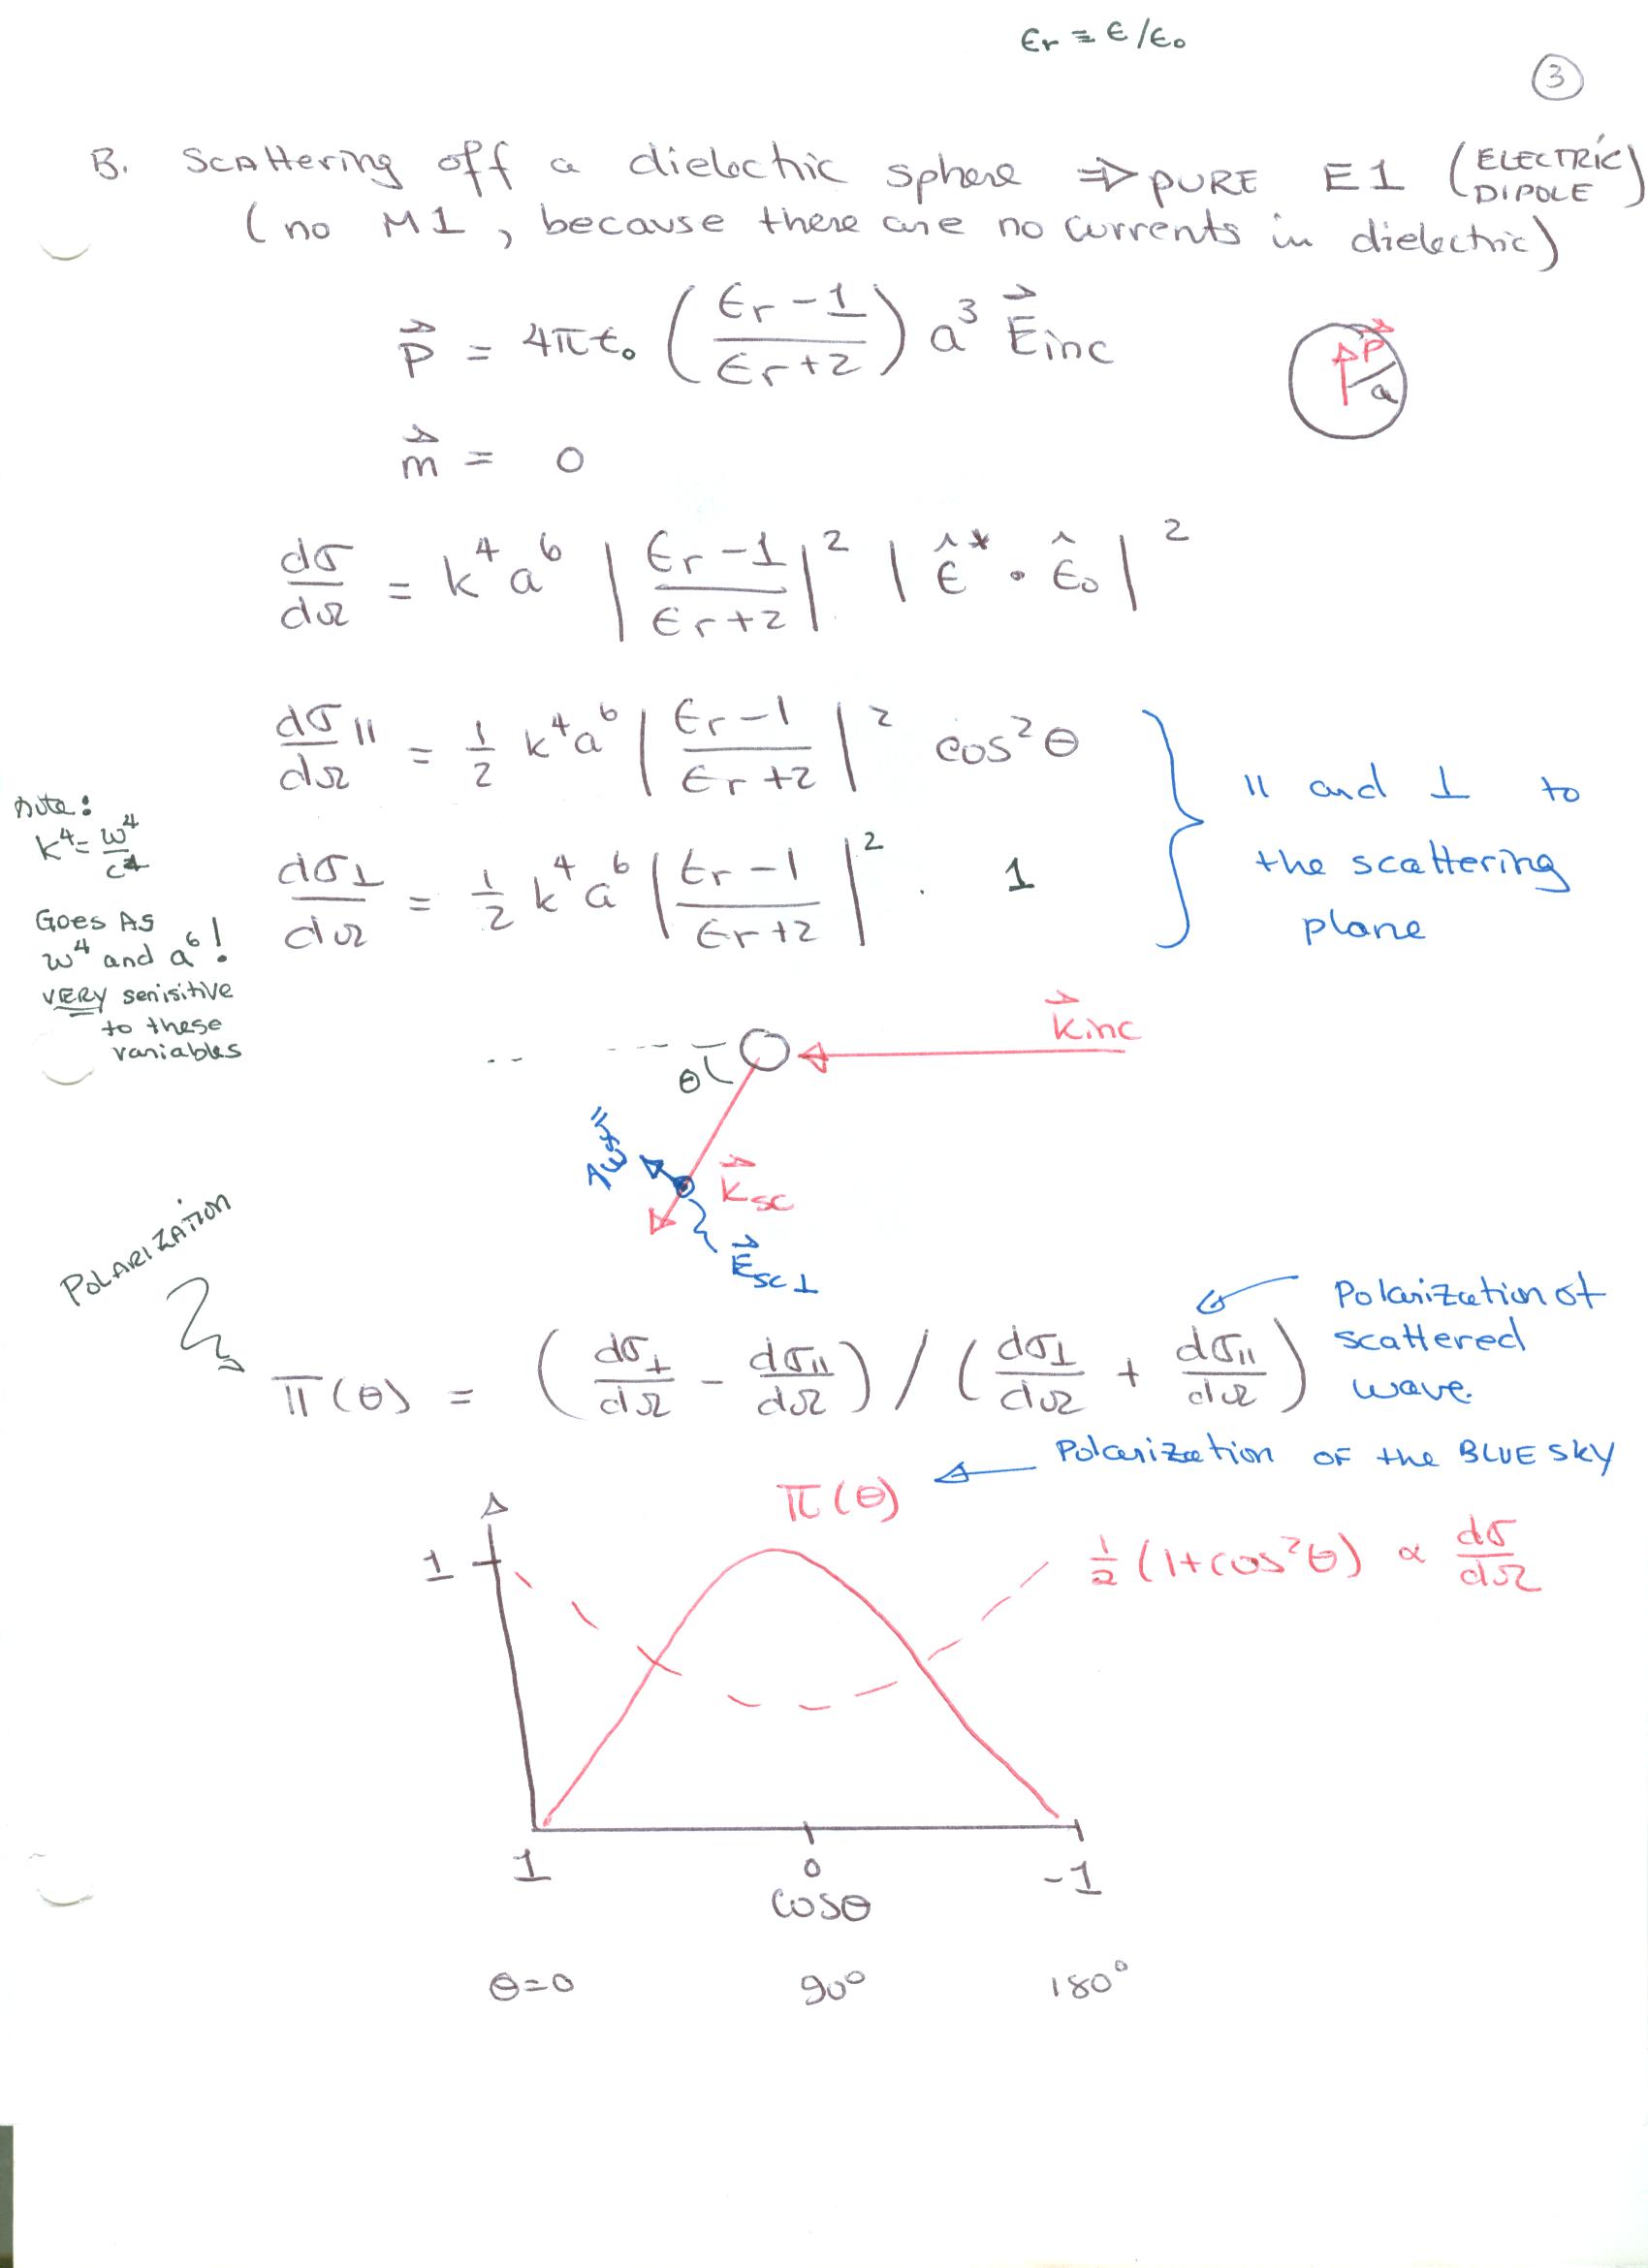 εr ≡ ε/ε₀
③
B. Scattering off a dielectric sphere ⇒ PURE E1 (ELECTRIC DIPOLE)
(no M1, because there are no currents in dielectric)
p⃗ = 4πε₀ ((εr - 1)/(εr + 2)) a³ E⃗inc
p⃗
a
m⃗ = 0
dσ/dΩ = k⁴a⁶ |(εr - 1)/(εr + 2)|² |ε̂* · ε̂₀|²
dσ∥/dΩ = ½ k⁴a⁶ |(εr - 1)/(εr + 2)|² cos²θ
dσ⊥/dΩ = ½ k⁴a⁶ |(εr - 1)/(εr + 2)|² · 1
∥ and ⊥ to
the scattering
plane
Note:
k⁴ = ω⁴/c⁴
Goes As
ω⁴ and a⁶!
VERY senisitive
to these
variables
k⃗inc
θ
E⃗sc∥
k⃗sc
E⃗sc⊥
POLARIZATION
Π(θ) = (dσ⊥/dΩ - dσ∥/dΩ) / (dσ⊥/dΩ + dσ∥/dΩ)
Polarization of
scattered
wave.
Polarization OF the BLUE SKY
Π(θ)
½(1+cos²θ) ∝ dσ/dΩ
1
1 0 -1
cosθ
θ=0 90° 180°